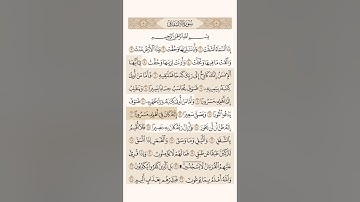 سُورَةُ الانشِقَاقِ
بِسْمِ اللَّهِ الرَّحْمَٰنِ الرَّحِيمِ
إِذَا السَّمَاءُ انشَقَّتْ ١ وَأَذِنَتْ لِرَبِّهَا وَحُقَّتْ ٢ وَإِذَا الْأَرْضُ مُدَّتْ ٣
وَأَلْقَتْ مَا فِيهَا وَتَخَلَّتْ ٤ وَأَذِنَتْ لِرَبِّهَا وَحُقَّتْ ٥ يَا أَيُّهَا
الْإِنسَانُ إِنَّكَ كَادِحٌ إِلَىٰ رَبِّكَ كَدْحًا فَمُلَاقِيهِ ٦ فَأَمَّا مَنْ أُوتِيَ
كِتَابَهُ بِيَمِينِهِ ٧ فَسَوْفَ يُحَاسَبُ حِسَابًا يَسِيرًا ٨ وَيَنقَلِبُ
إِلَىٰ أَهْلِهِ مَسْرُورًا ٩ وَأَمَّا مَنْ أُوتِيَ كِتَابَهُ وَرَاءَ ظَهْرِهِ ١٠ فَسَوْفَ
يَدْعُو ثُبُورًا ١١ وَيَصْلَىٰ سَعِيرًا ١٢ إِنَّهُ كَانَ فِي أَهْلِهِ مَسْرُورًا ١٣
إِنَّهُ ظَنَّ أَن لَّن يَحُورَ ١٤ بَلَىٰ إِنَّ رَبَّهُ كَانَ بِهِ بَصِيرًا ١٥ فَلَا أُقْسِمُ
بِالشَّفَقِ ١٦ وَاللَّيْلِ وَمَا وَسَقَ ١٧ وَالْقَمَرِ إِذَا اتَّسَقَ ١٨
لَتَرْكَبُنَّ طَبَقًا عَن طَبَقٍ ١٩ فَمَا لَهُمْ لَا يُؤْمِنُونَ ٢٠ وَإِذَا قُرِئَ
عَلَيْهِمُ الْقُرْآنُ لَا يَسْجُدُونَ ۩ ٢١ بَلِ الَّذِينَ كَفَرُوا يُكَذِّبُونَ ٢٢
وَاللَّهُ أَعْلَمُ بِمَا يُوعُونَ ٢٣ فَبَشِّرْهُم بِعَذَابٍ أَلِيمٍ ٢٤